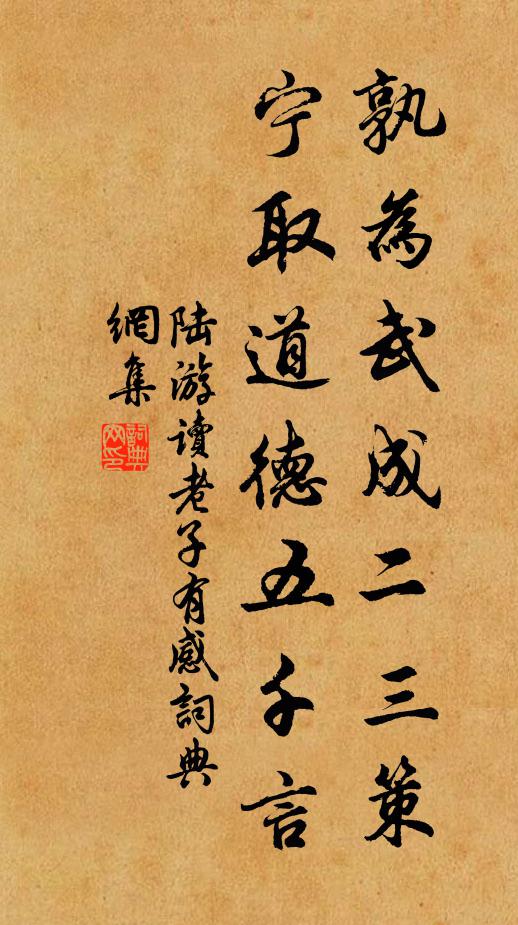 孰為武成二三策
宁取道德五千言
陆游讀老子有感詞典
網集
詞典
网印